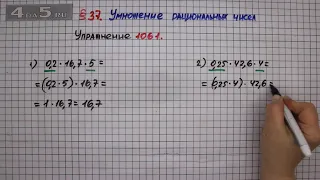 4 da 5.RU
§ 37. Умножение рациональных чисел
Упражнение 1061.
1) 0,2 · 16,7 · 5 =
= (0,2 · 5) · 16,7 =
= 1 · 16,7 = 16,7
2) 0,25 · 42,6 · 4 =
= (0,25 · 4) · 42,6 =